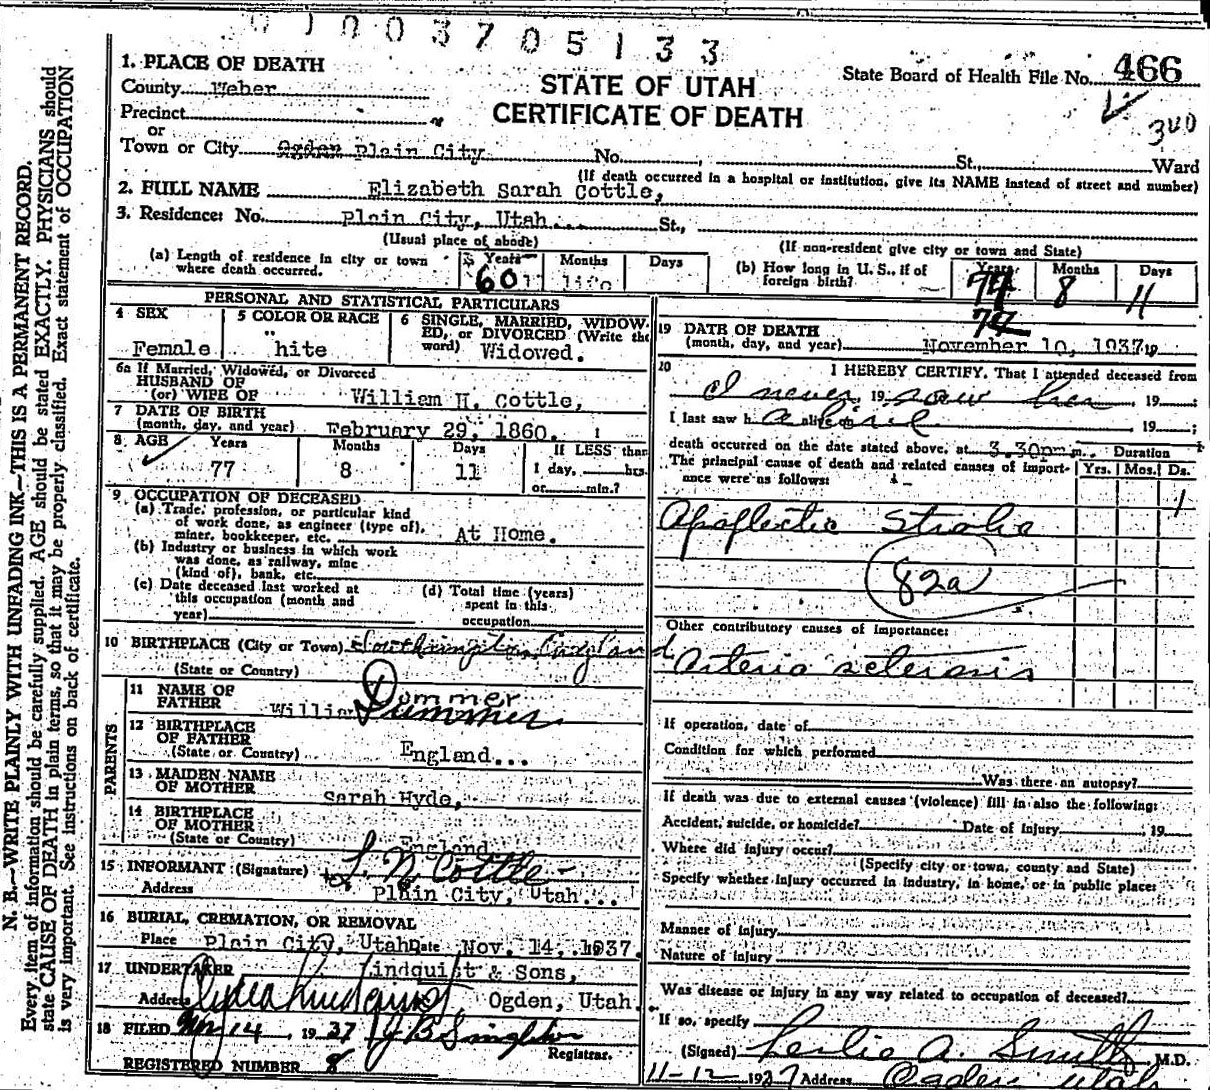 01003705133
1. PLACE OF DEATH
County Weber
STATE OF UTAH
CERTIFICATE OF DEATH
State Board of Health File No. 466
340
Precinct
or
Town or City Ogden Plain City No. , St. Ward
(If death occurred in a hospital or institution, give its NAME instead of street and number)
2. FULL NAME Elizabeth Sarah Cottle,
3. Residence: No. Plain City, Utah... St.,
(Usual place of abode) (If non-resident give city or town and State)
(a) Length of residence in city or town where death occurred. Years 60 Months life Days
(b) How long in U. S., if of foreign birth? Years 77 Months 8 Days 11
77
PERSONAL AND STATISTICAL PARTICULARS
4 SEX Female
5 COLOR OR RACE hite
6 SINGLE, MARRIED, WIDOW-
ED, or DIVORCED (Write the
word) Widowed.
6a If Married, Widowed, or Divorced
HUSBAND OF
(or) WIFE OF William H. Cottle,
7 DATE OF BIRTH
(month, day, and year) February 29, 1860.
8 AGE Years 77 Months 8 Days 11 If LESS than
1 day, hrs.
or min.?
9 OCCUPATION OF DECEASED
(a) Trade, profession, or particular kind
of work done, as engineer (type of),
miner, bookkeeper, etc. At Home.
(b) Industry or business in which work
was done, as railway, mine
(kind of), bank, etc.
(c) Date deceased last worked at
this occupation (month and
year)
(d) Total time (years)
spent in this
occupation
10 BIRTHPLACE (City or Town) England
(State or Country)
PARENTS
11 NAME OF
FATHER William Dummer
Dummer
12 BIRTHPLACE
OF FATHER
(State or Country) England...
13 MAIDEN NAME
OF MOTHER Sarah Hyde,
14 BIRTHPLACE
OF MOTHER
(State or Country) England
15 INFORMANT (Signature) Cottle
Address Plain City, Utah...
16 BURIAL, CREMATION, OR REMOVAL
Place Plain City, Utah Date Nov. 14, 1937.
17 UNDERTAKER Lindquist & Sons,
Address Lindquist Ogden, Utah
18 FILED Nov 14, 1937 J B Singleton
Registrar.
REGISTERED NUMBER 8
19 DATE OF DEATH
(month, day, and year) November 10, 1937 19
20 I HEREBY CERTIFY, That I attended deceased from
I never 19 saw her 19 ;
I last saw h alive on alive 19 ;
death occurred on the date stated above, at 3.30pm m. Duration
The principal cause of death and related causes of import-
ance were as follows: Yrs. Mos. Ds.
1
Apoplectic Stroke
82a
Other contributory causes of importance:
Arterio sclerosis
If operation, date of
Condition for which performed
Was there an autopsy?
If death was due to external causes (violence) fill in also the following:
Accident, suicide, or homicide? Date of injury , 19
Where did injury occur?
(Specify city or town, county and State)
Specify whether injury occurred in industry, in home, or in public place:
Manner of injury
Nature of injury
Was disease or injury in any way related to occupation of deceased?
If so, specify
(Signed) Leslie A. Smith M.D.
11-12 1937 Address Ogden Utah
N. B.—WRITE PLAINLY WITH UNFADING INK—THIS IS A PERMANENT RECORD.
Every item of information should be carefully supplied. AGE should be stated EXACTLY. PHYSICIANS should
state CAUSE OF DEATH in plain terms, so that it may be properly classified. Exact statement of OCCUPATION
is very important. See instructions on back of certificate.